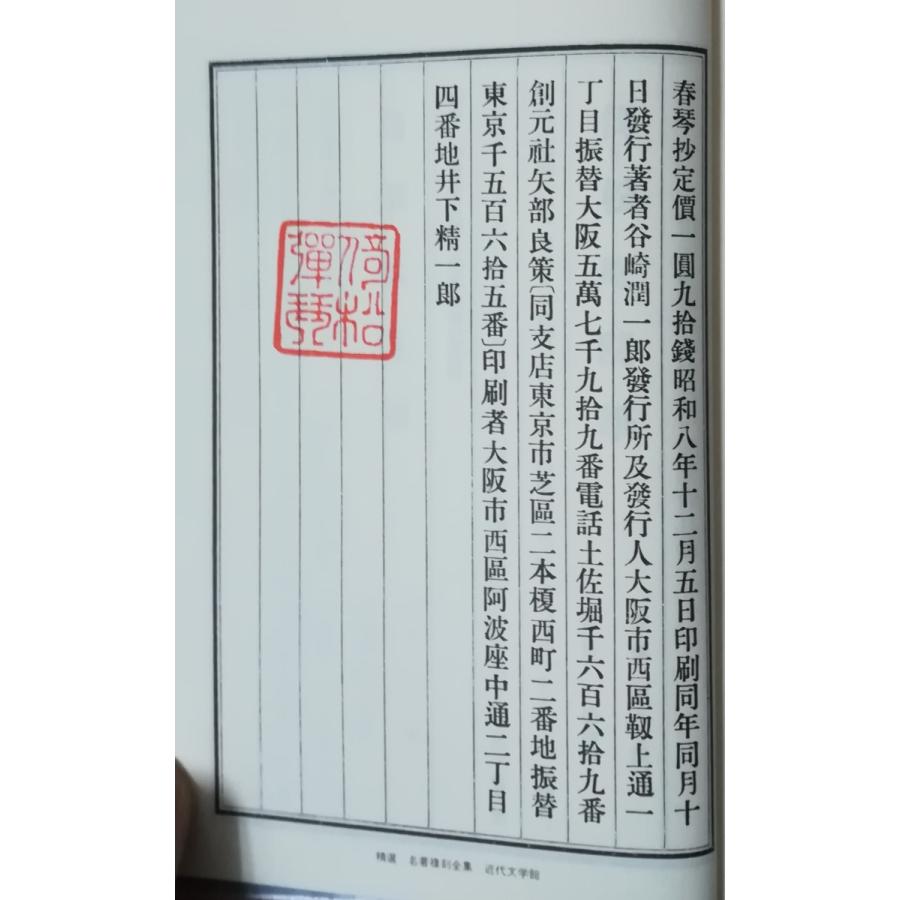 春琴抄定價一圓九拾錢昭和八年十二月五日印刷同年同月十
日發行著者谷崎潤一郎發行所及發行人大阪市西區靱上通一
丁目振替大阪五萬七千九拾九番電話土佐堀千六百六拾九番
創元社矢部良策〔同支店東京市芝區二本榎西町二番地振替
東京千五百六拾五番〕印刷者大阪市西區阿波座中通二丁目
四番地井下精一郎
倚松
彈琴
精選 名著複刻全集 近代文学館